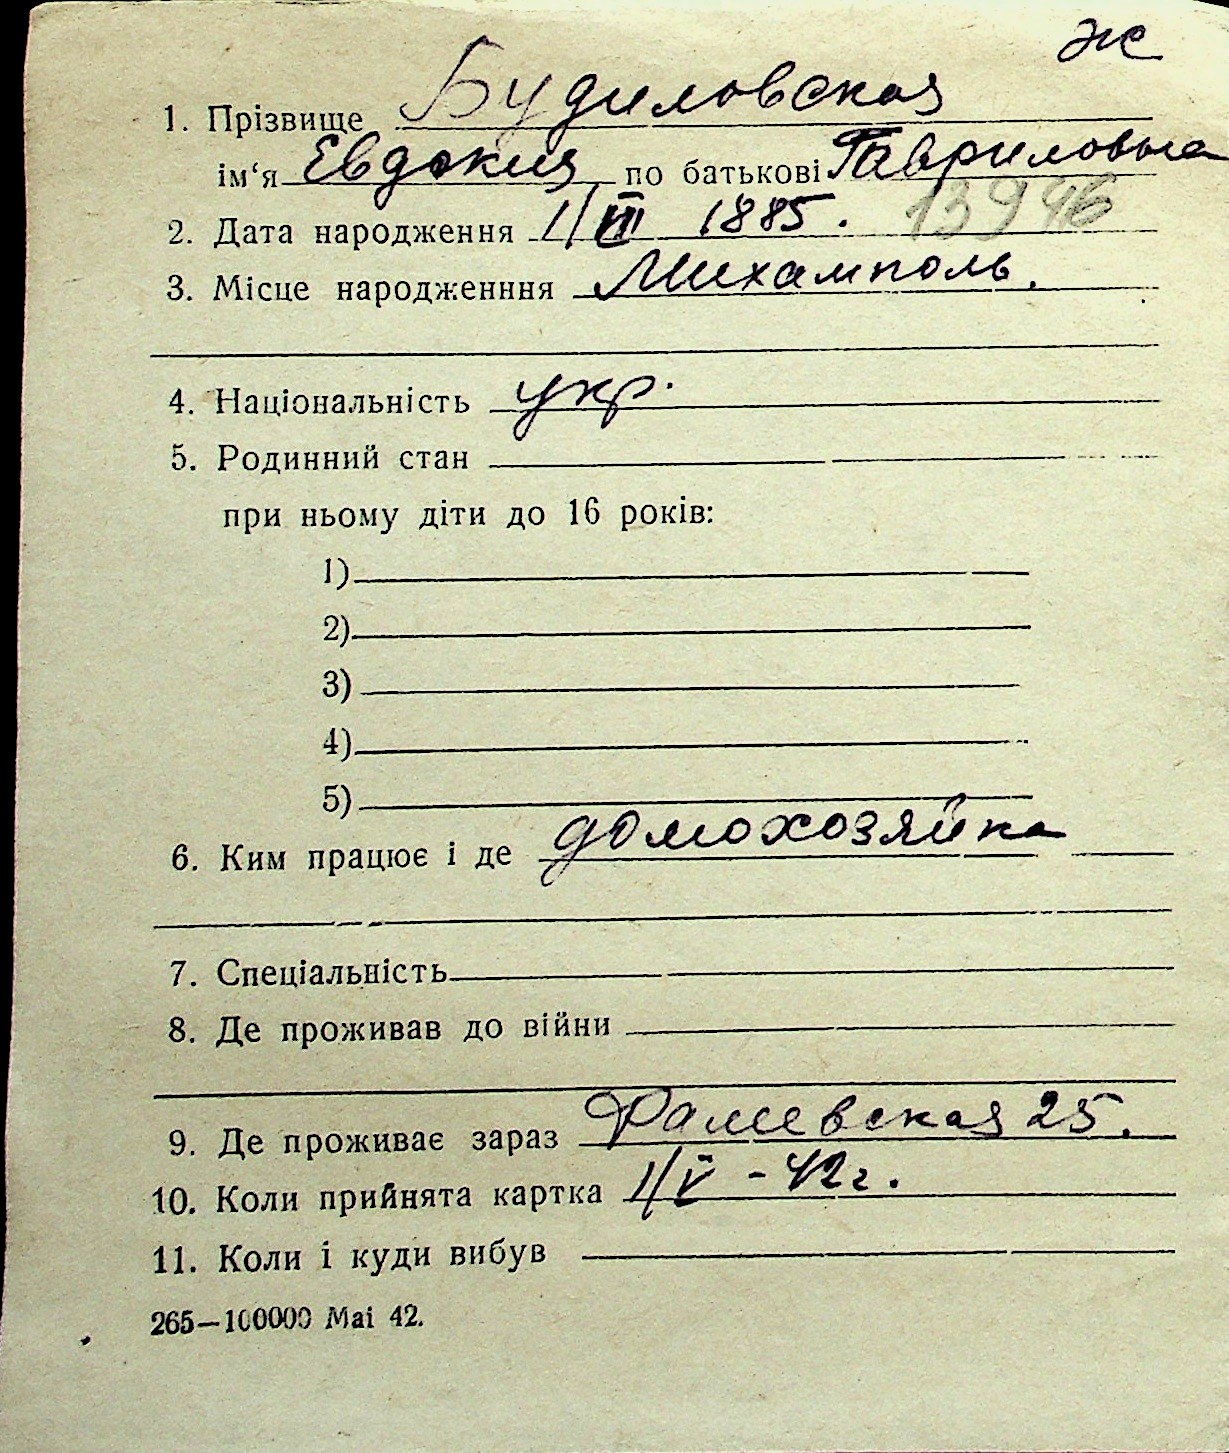 ж
1. Прізвище Будиловская
ім‘я Евдокия по батькові Гавриловна
13946
2. Дата народження 1/III 1885.
3. Місце народженння Михамполь.
4. Національність укр.
5. Родинний стан
при ньому діти до 16 років:
1)
2)
3)
4)
5)
6. Ким працює і де домохозяйка
7. Спеціальність
8. Де проживав до війни
9. Де проживає зараз 25.
10. Коли прийнята картка 1/V - 42 г.
11. Коли і куди вибув
265—100000 Mai 42.